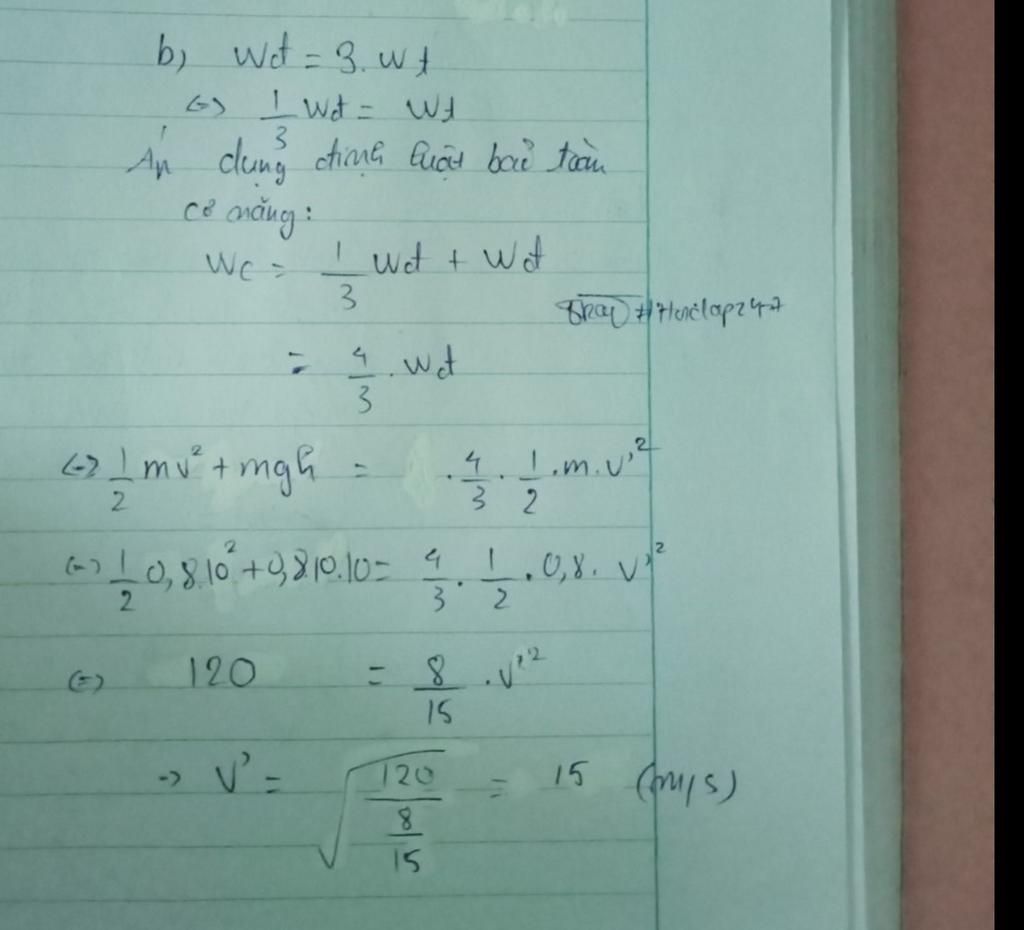 b) Wđ = 3. Wt
<=> 1/3 Wđ = Wt
Áp dụng định luật bảo toàn
cơ năng:
Wc = 1/3 Wđ + Wđ
= 4/3 . Wđ
<=> 1/2 mv² + mgh = . 4/3 . 1/2 . m . v'²
<=> 1/2 0,8.10² + 0,8.10.10 = 4/3 . 1/2 . 0,8. v'²
<=> 120 = 8/15 . v'²
-> v' = √(120/(8/15)) = 15 (m/s)